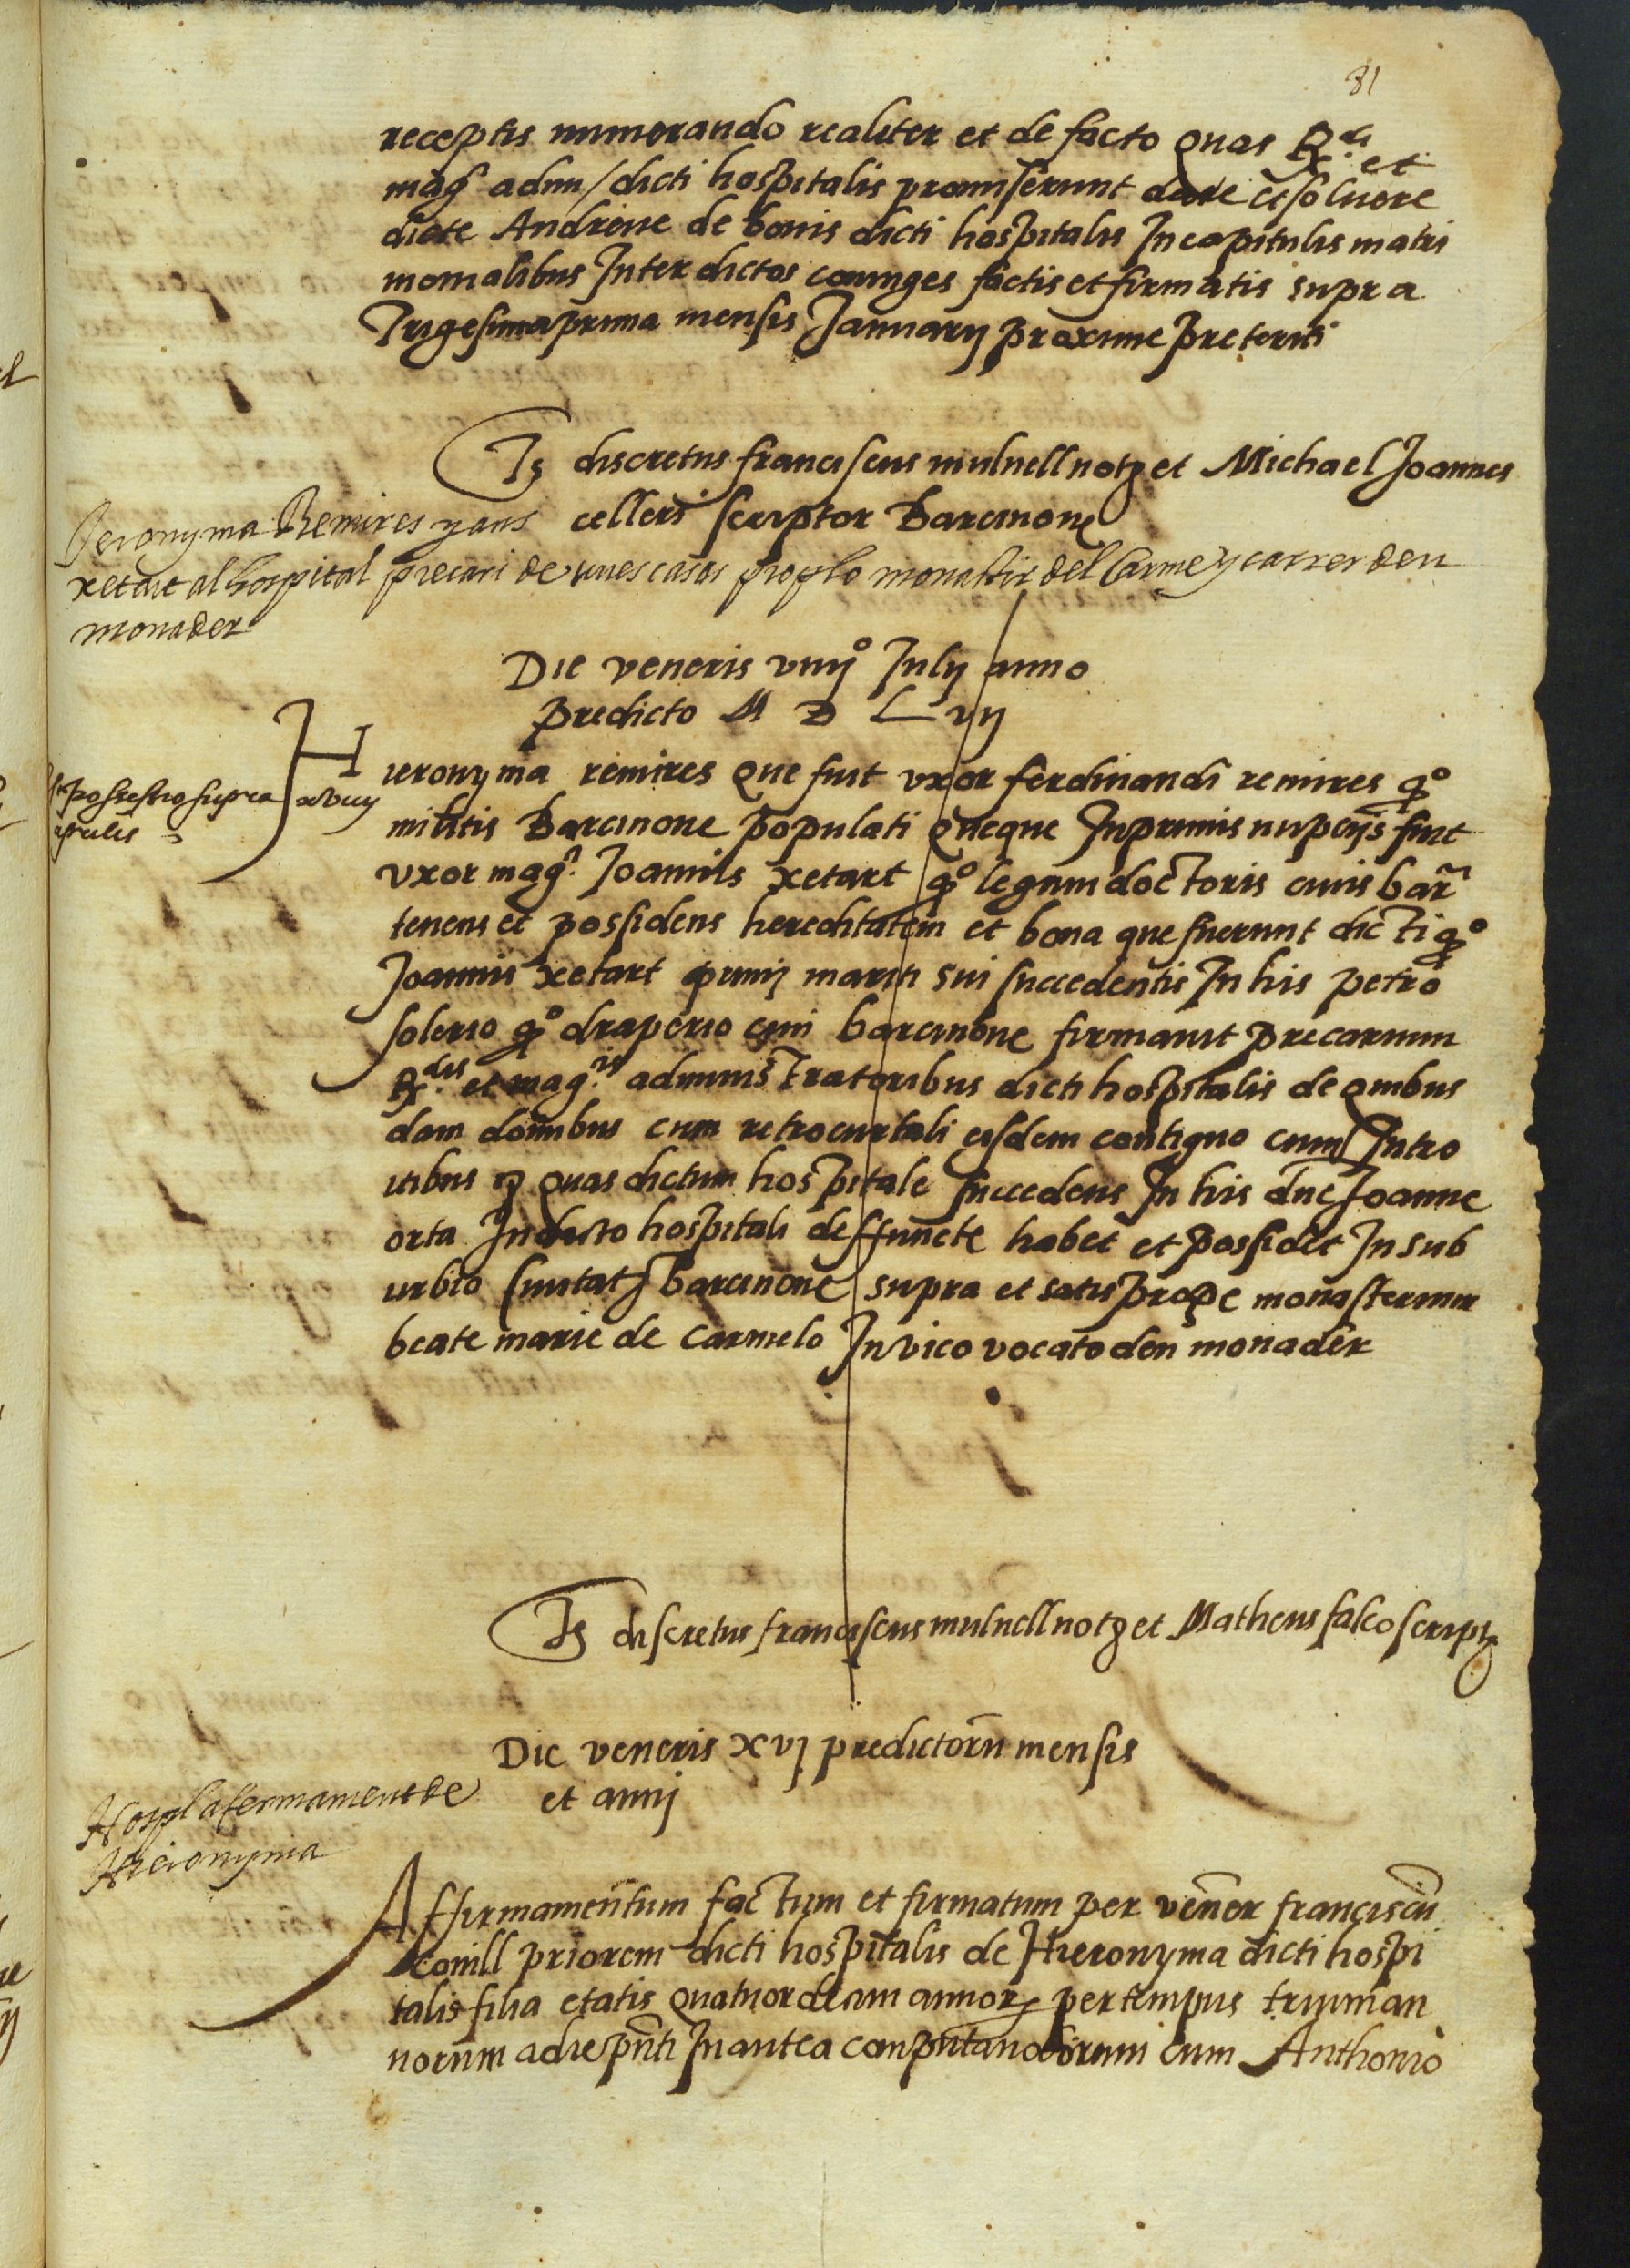 81
receptis numerando realiter et de facto quas R.di et
mag.ci adm / dicti hospitalis promiserunt dare et soluere
dicte Andreue de bonis dicti hospitalis In capitulis matri
monialibus Inter dictos coniuges factis et firmatis supra
Trigesima prima mensis Januarij proxime preteriti
Ts discretus franciscus muluell not9 et Michael Joannes
cellers scriptor Barcinone
Jeronyma Remires y ans
xetart al hospital precari de unes casas prop lo monastir del Carme y carrer den
monader
Die veneris viiijº Julij anno
predicto M D L vij
Hieronyma remires que fuit vxor ferdinandi remires qº
possessio supra xviiij
militis Barcinone populati queque In primis nupcijs fuit
vxor mag.ci Joannis xetart qº legum doctoris ciuis barñ
tenens et possidens hereditatem et bona que fuerunt dicti qº
Joannis xetart primi mariti sui succedentis In his petro
solerio qº draperio ciui barcinone firmauit precarium
R.dis et mag.cis administratoribus dicti hospitalis de quibus
dam domibus cum retrocurtali eisdem contiguo cum Intro
itibus &c quas dictum hospitale succedens In his dñe Joanne
orta In dicto hospitali deffuncte habet et possidet In sub
urbio Ciuitat9 barcinone supra et satis prope monasterium
beate marie de carmelo In vico vocato den monader
Ts discretus franciscus muluell not9 et Matheus falco script9
Die veneris xvj predictorũ mensis
et anni
Hospl afermament de
Hieronyma
Affirmamentum factum et firmatum per veñer franciscũ
conill priorem dicti hospitalis de Hieronyma dicti hospi
talis filia etatis quatuordecim annor9 per tempus trium an
norum a die pñti In antea computandorum cum Anthonio